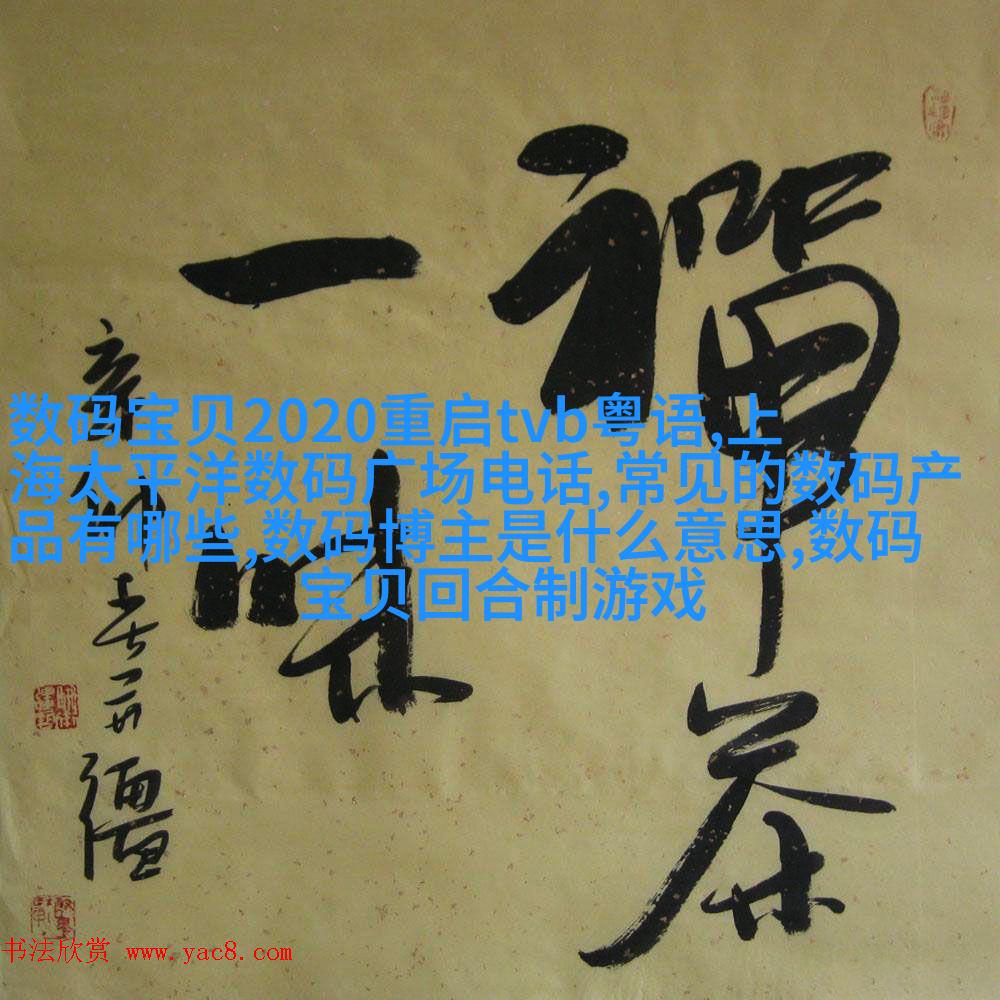 禅茶
一味
数码宝贝2020重启tvb粤语,上
海太平洋数码广场电话,常见的数码产
品有哪些,数码博主是什么意思,数码
宝贝回合制游戏
书法欣赏 www.yac8.com